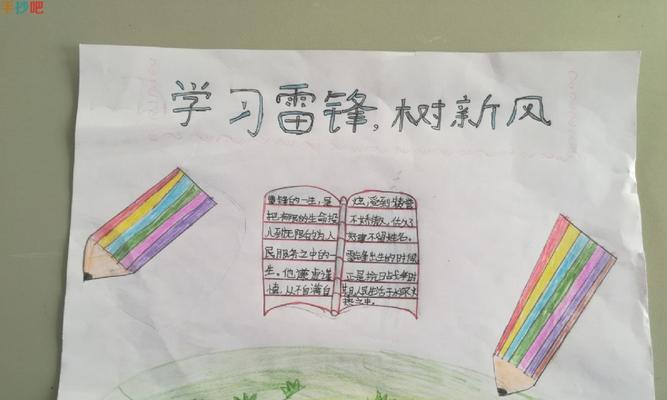 手抄吧
学习雷锋,树新风
雷锋的一生,是
把有限的生命投
入到无限的为人
民服务之中的一
生。他谦虚谨
慎,从不自满自
炫,受到赞誉
不骄傲,做
好事不留姓名。
雷锋出生的时候
正是抗日战争时
期,人民生活于水深火
热之中。